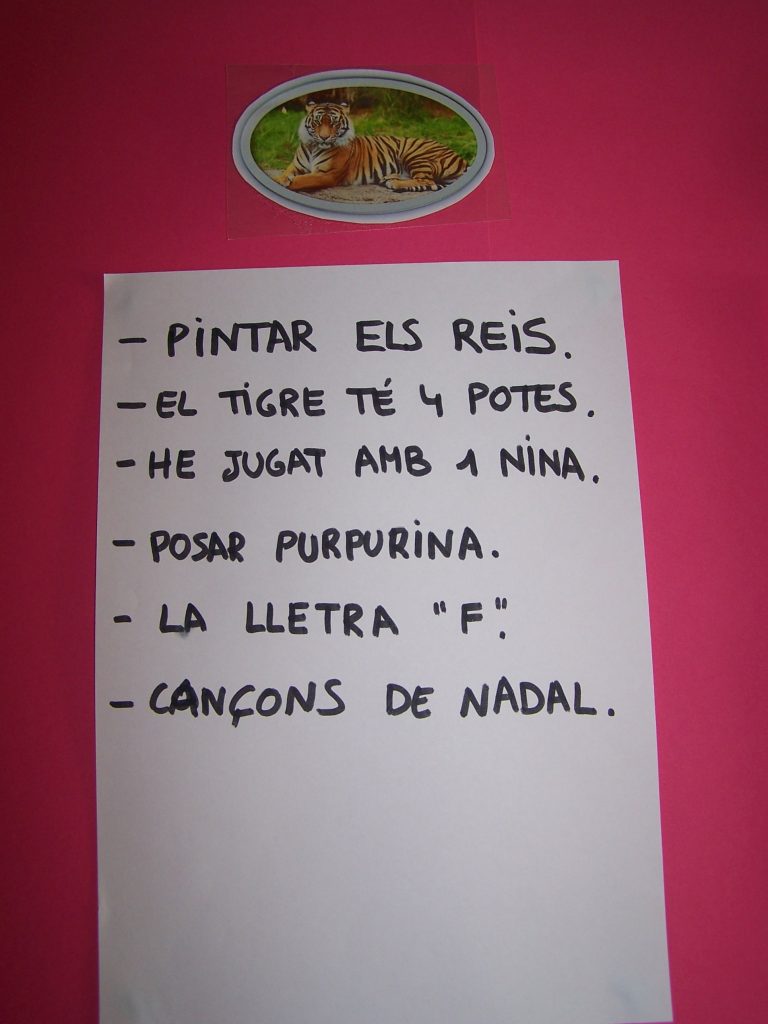 - PINTAR ELS REIS.
- EL TIGRE TÉ 4 POTES.
- HE JUGAT AMB 1 NINA.
- POSAR PURPURINA.
- LA LLETRA "F".
- CANÇONS DE NADAL.